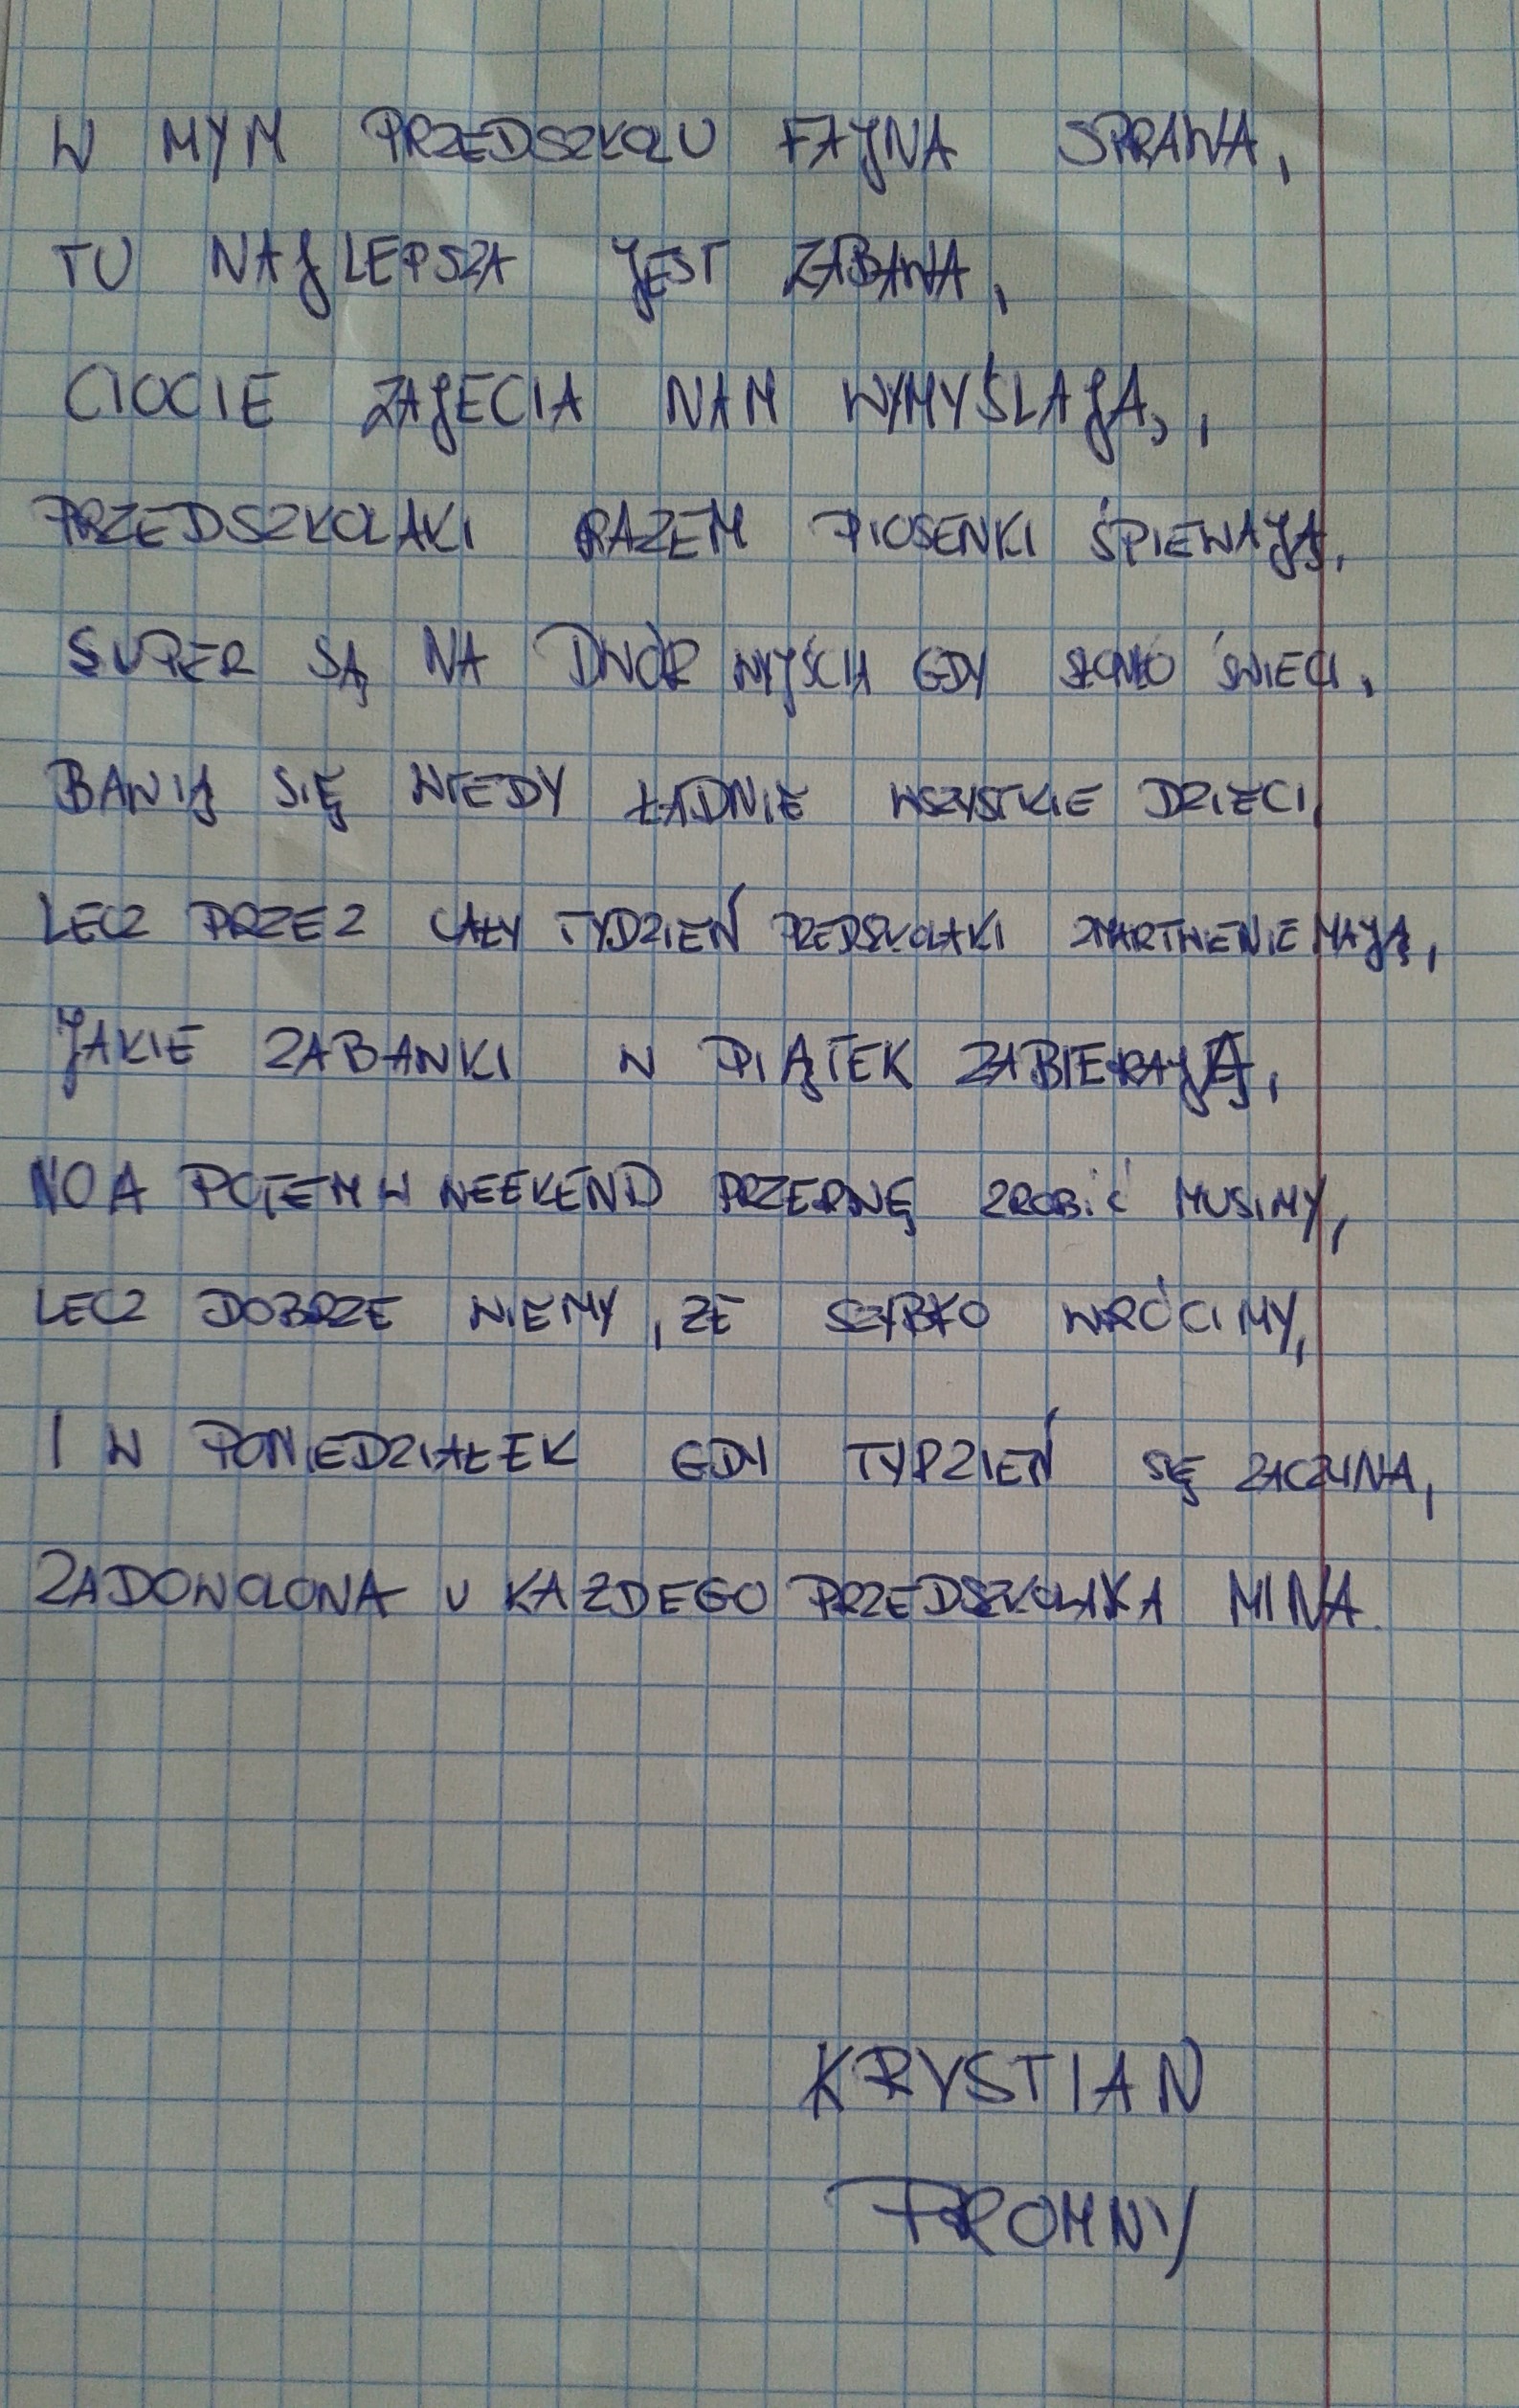 W MYM PRZEDSZKOLU FAJNA SPRAWA,
TU NAJLEPSZA JEST ZABAWA,
CIOCIE ZAJECIA NAM WYMYŚLAJĄ,
PRZEDSZKOLAKI RAZEM PIOSENKI ŚPIEWAJĄ,
SUPER SĄ NA DWÓR WYJŚCIA GDY SŁONKO ŚWIECI,
BAWIĄ SIĘ WTEDY ŁADNIE WSZYSTKIE DZIECI,
LECZ PRZEZ CAŁY TYDZIEŃ PRZEDSZKOLAKI ZMARTWIENIE MAJĄ,
JAKIE ZABAWKI W PIĄTEK ZABIERAJĄ,
NO A POTEM W WEEKEND PRZERWĘ ZROBIĆ MUSIMY,
LECZ DOBRZE WIEMY, ZE SZYBKO WRÓCIMY,
I W PONIEDZIAŁEK GDY TYDZIEŃ SIĘ ZACZYNA,
ZADOWOLONA U KAZDEGO PRZEDSZKOLAKA MINA.
KRYSTIAN
PROMNY